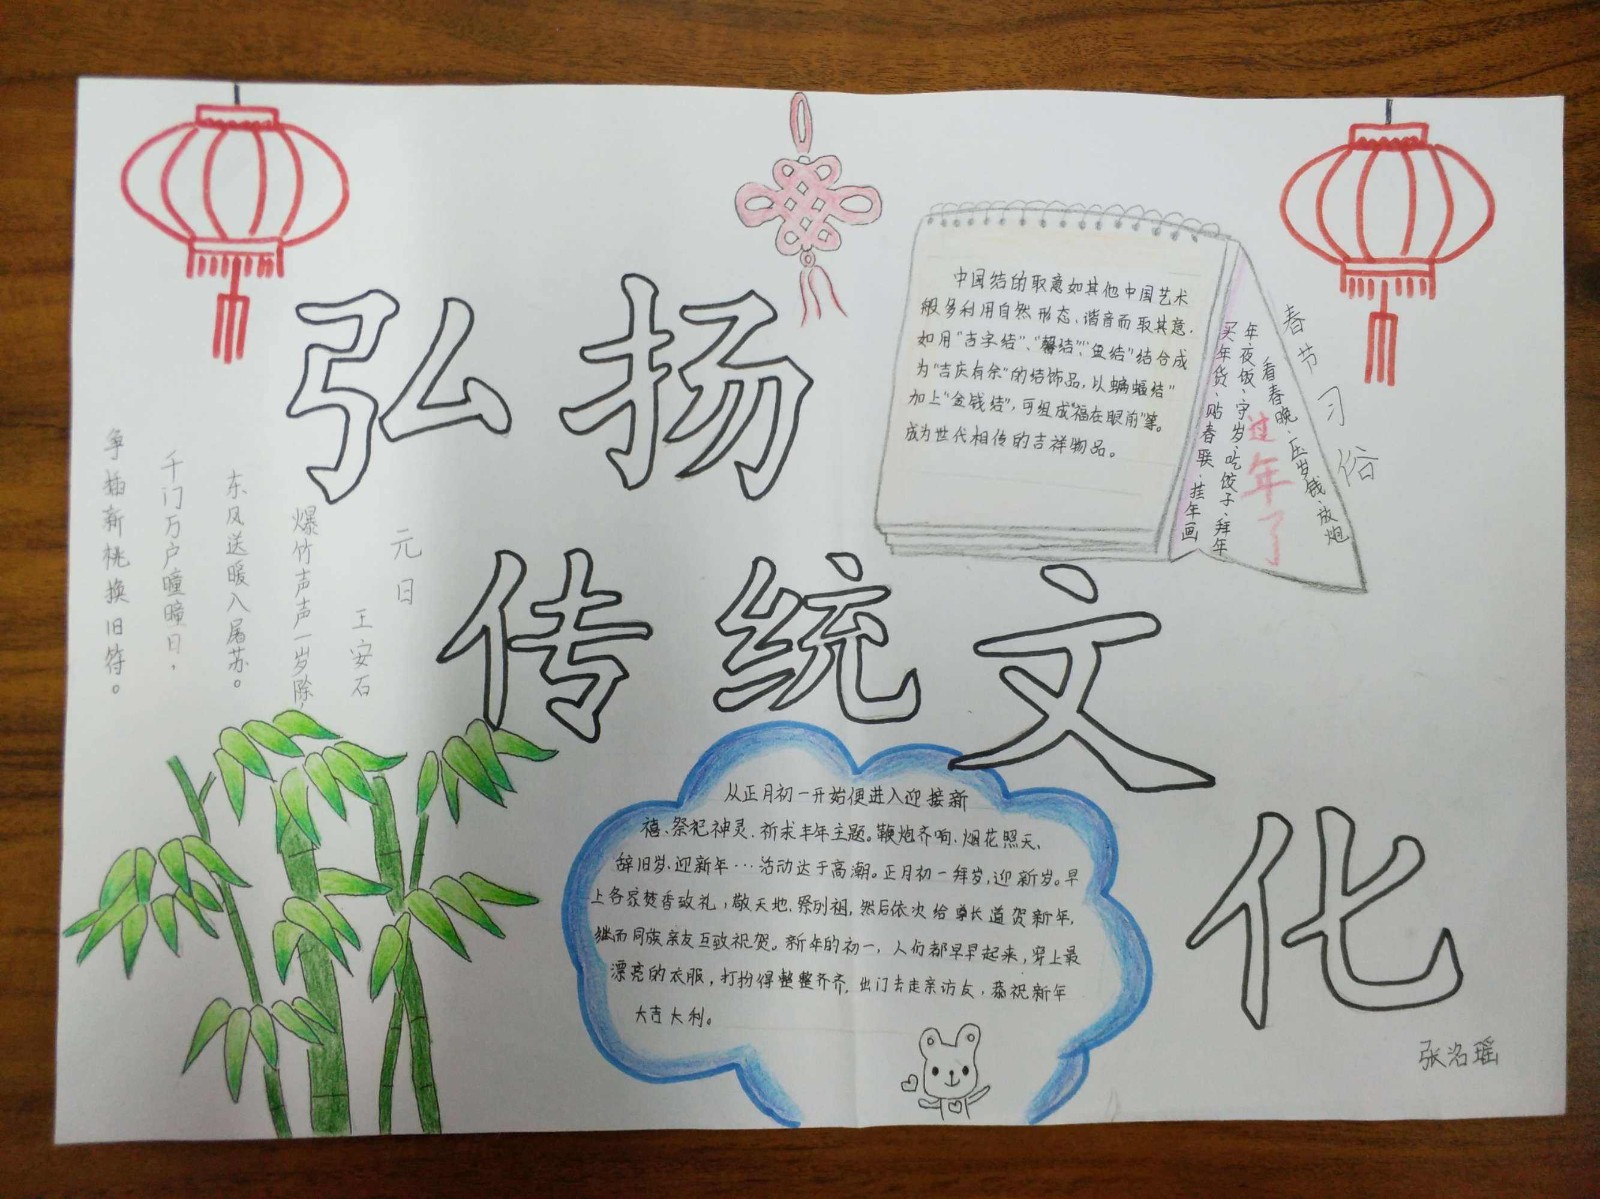 弘扬
传统文
化
元日
王安石
爆竹声声一岁除，
东风送暖入屠苏。
千门万户曈曈日，
争插新桃换旧符。
中国结的取意如其他中国艺术
般多利用自然形态、谐音而取其意，
如用“吉字结”、“馨结”、“鱼结”结合成
为“吉庆有余”的结饰品，以“蝙蝠结”
加上“金钱结”，可组成“福在眼前”等。
成为世代相传的吉祥物品。
春节习俗
看春晚、压岁钱、放炮
年夜饭、守岁、吃饺子、拜年
买年货、贴春联、挂年画
过年了
从正月初一开始便进入迎接新
禧、祭祀神灵、祈求丰年主题。鞭炮齐响、烟花照天、
辞旧岁、迎新年…活动达于高潮。正月初一拜岁，迎新岁。早
上各家焚香致礼，敬天地、祭列祖，然后依次给尊长道贺新年，
继而同族亲友互致祝贺。新年的初一，人们都早早起来，穿上最
漂亮的衣服，打扮得整整齐齐，出门去走亲访友，恭祝新年
大吉大利。
张洺瑶